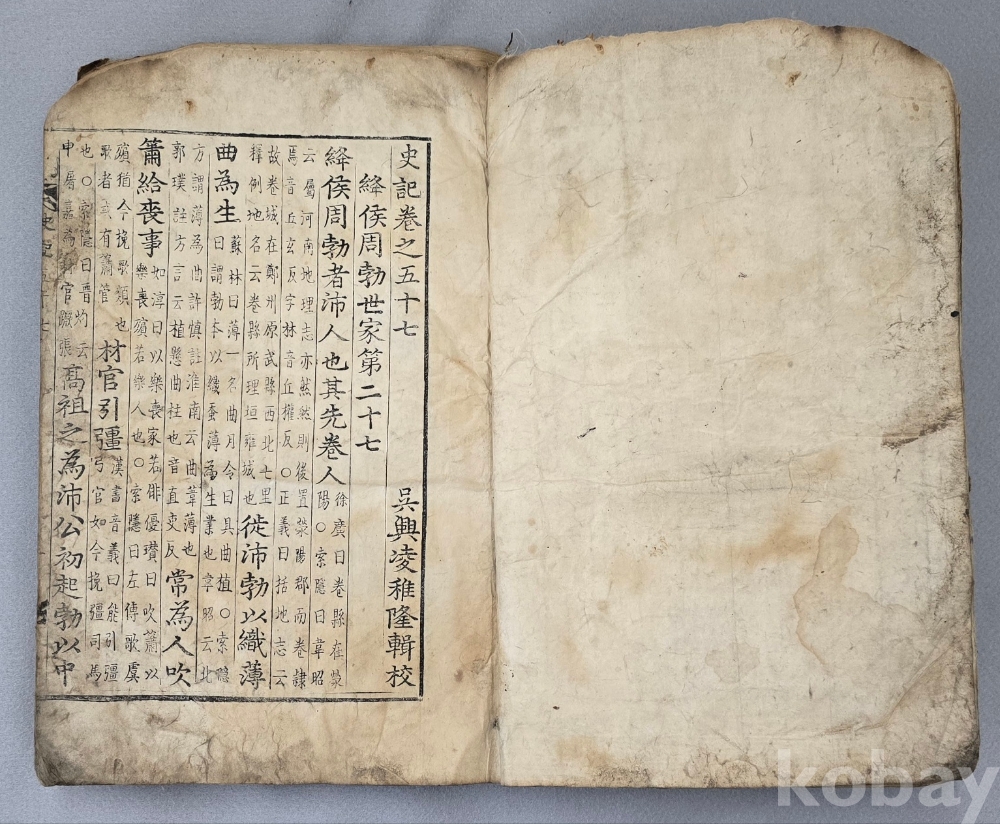 史記卷之五十七 吳興凌稚隆輯校
絳侯周勃世家第二十七
絳侯周勃者沛人也其先卷人
徐廣曰卷縣在滎
陽○索隱曰韋昭
云屬河南地理志亦然然則後置滎陽郡而卷隷
焉音丘玄反字林音丘權反○正義曰括地志云
故卷城在鄭州原武縣西北七里
釋例地名云卷縣所理垣雍城也
徙沛勃以織薄
曲為生
蘇林曰薄一名曲月令曰具曲植○索隱
曰謂勃本以織蚕薄為生業也韋昭云北
方謂薄為曲許慎註淮南云曲葦薄也
郭璞註方言云植懸曲柱也音直吏反
常為人吹
簫給喪事
如淳曰以樂喪家若俳優瓚曰吹簫以
樂喪殯若樂人也○索隱曰左傳歌虞
殯猶今挽歌類也
歌者或有簫管
材官引彊
漢書音義曰能引彊
弓官如今挽彊司馬
也○索隱曰晉灼云
申屠嘉為材官蹶張
高祖之為沛公初起勃以中
kobay